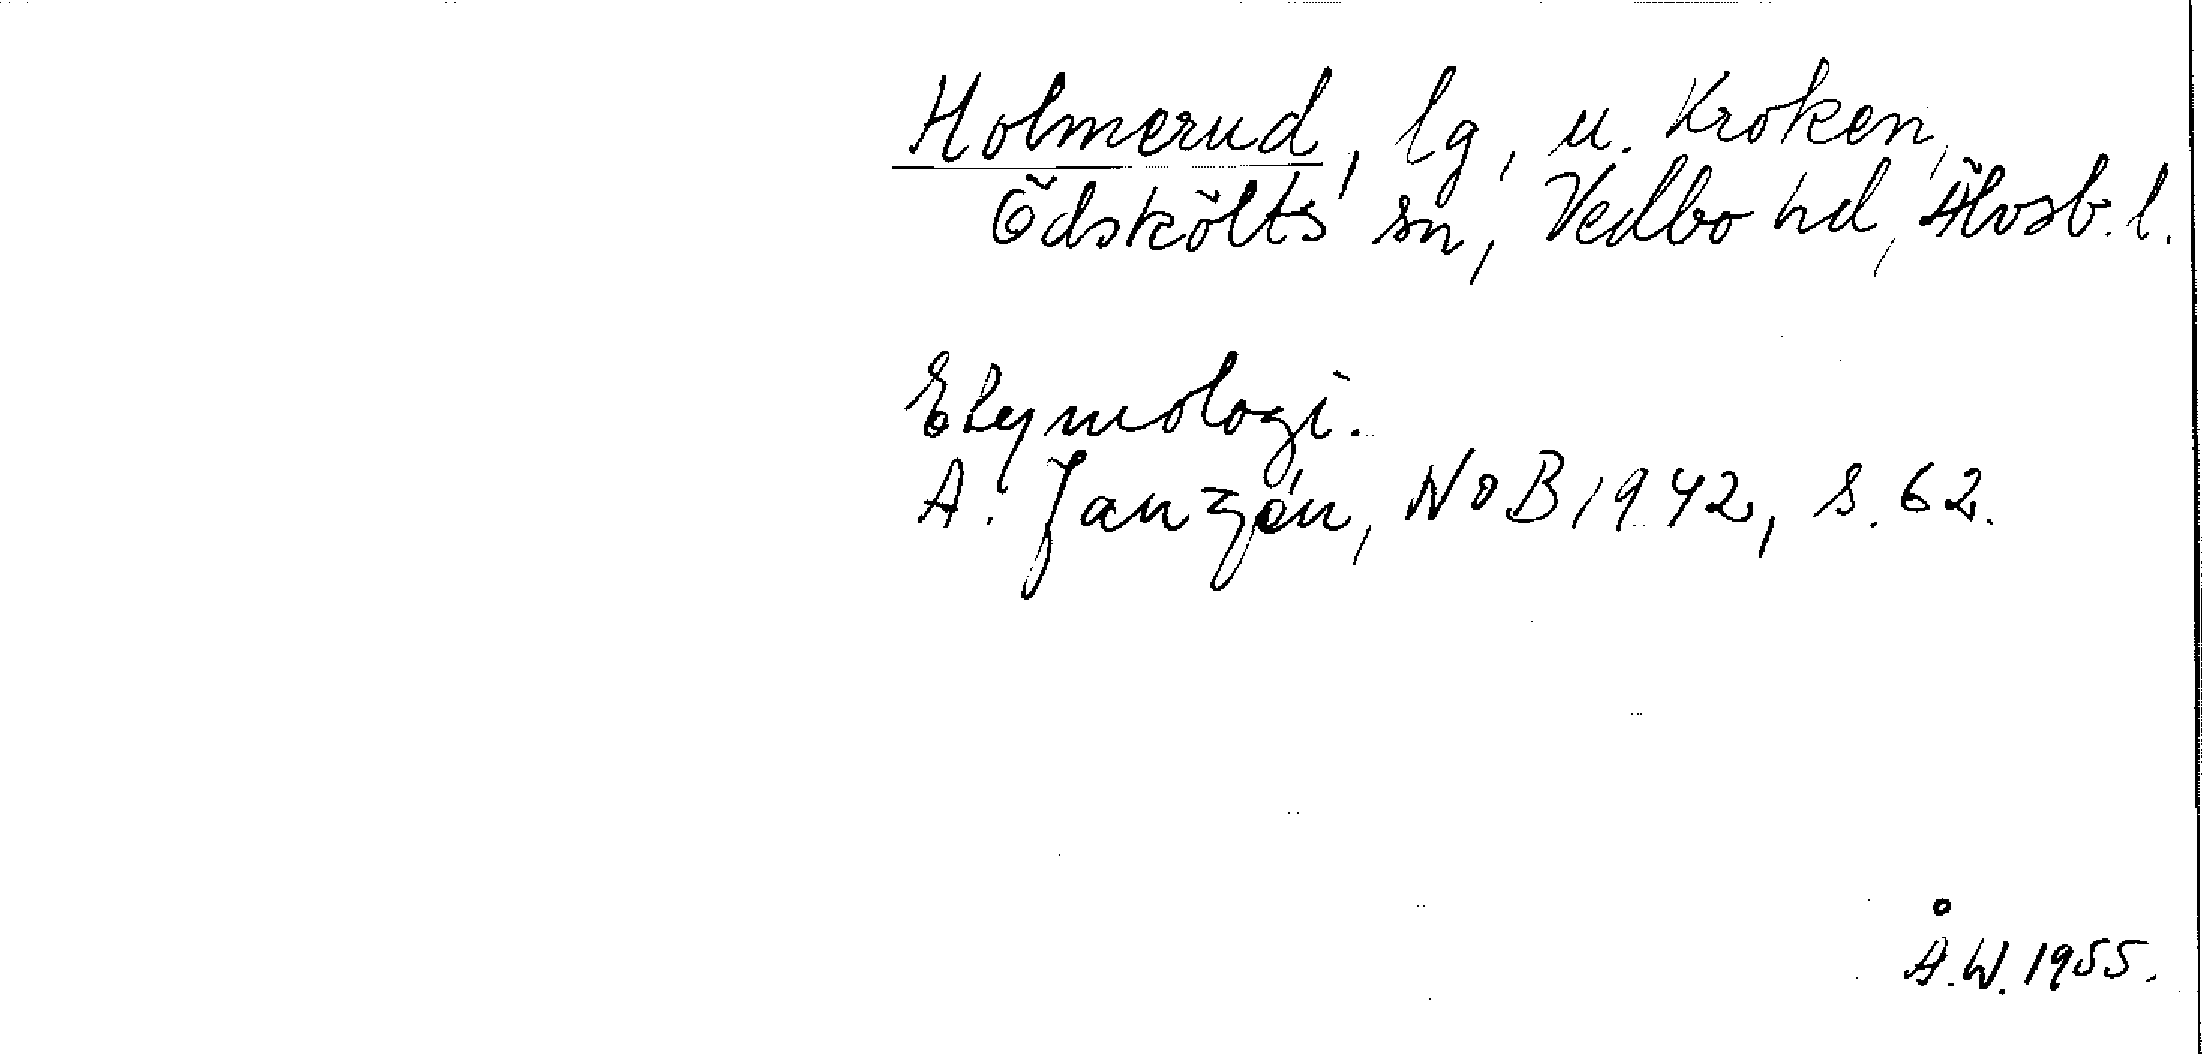 Holmerud, lg, u. Kroken,
Ödskölts sn, Vedbo hd, Älvsb. l.
Etymologi.
A. Janzén, NoB 1942, s. 62.
Å.W. 1955.